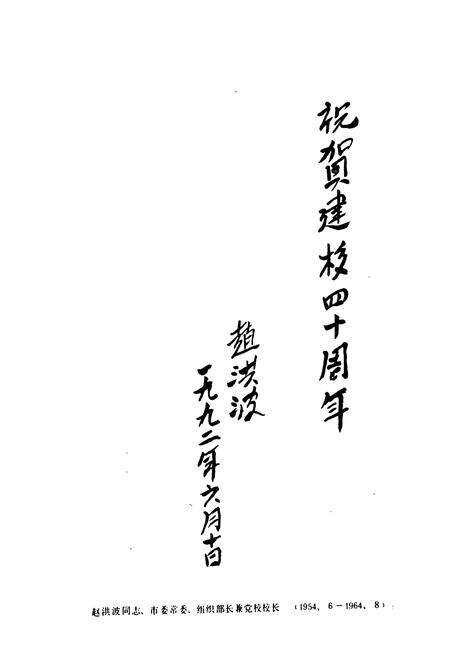 祝賀建校四十周年
趙洪波
一九九二年六月十日
赵洪波同志、市委常委、组织部长兼党校校长 （1954、6－1964、8）